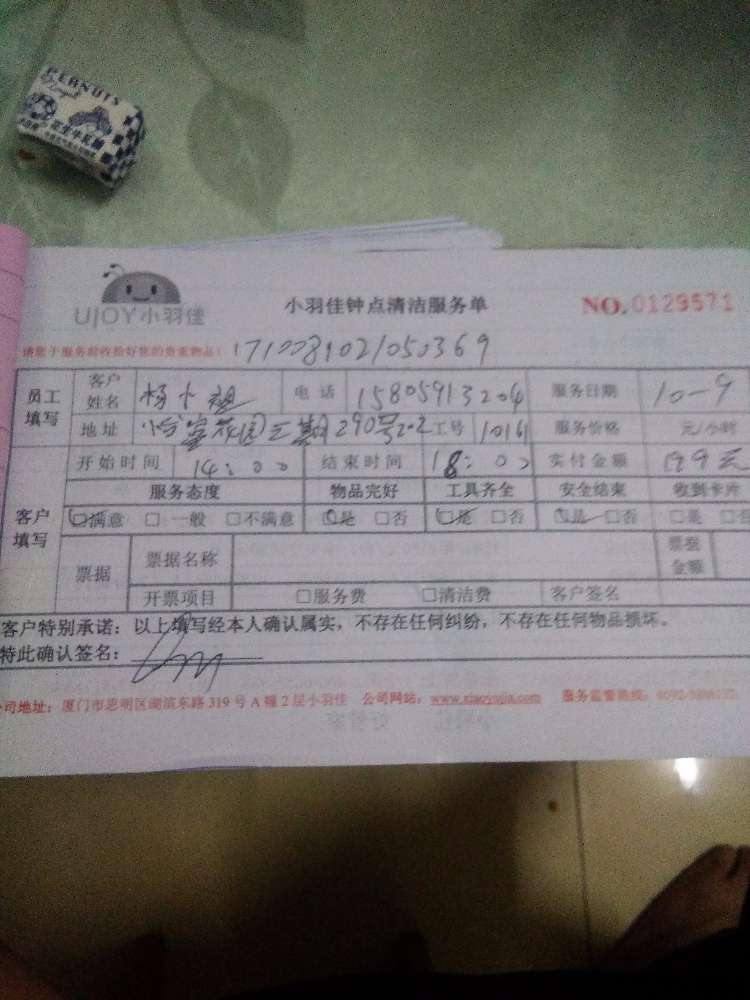 PEANUTS
UJOY小羽佳
小羽佳钟点清洁服务单
NO.0129571
请您于服务前收拾好您的贵重物品!
1710081021050369
员工填写 客户姓名 杨 电话 15805913204 服务日期 10-9
地址 花园三期290号202 工号 10161 服务价格 元/小时
客户填写 开始时间 14:00 结束时间 18:00 实付金额 199元
服务态度 物品完好 工具齐全 安全结束 收到卡片
□满意 □一般 □不满意 □是 □否 □是 □否 □是 □否 □是 □否
票据 票据名称 票据金额
开票项目 □服务费 □清洁费 客户签名
客户特别承诺:以上填写经本人确认属实,不存在任何纠纷,不存在任何物品损坏。
特此确认签名:
公司地址:厦门市思明区湖滨东路319号A幢2层小羽佳 公司网站:www.xiaoyujia.com 服务监督热线:0592-